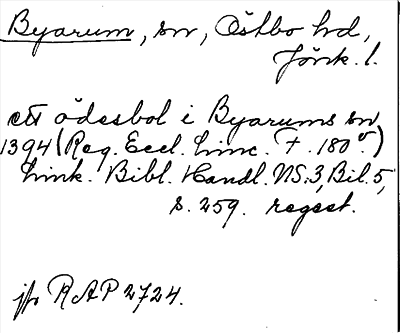 Byarum, sn, Östbo hd,
Jönk. l.
ett ödesbol i Byarums sn
1394 (Reg. Eccl. Linc. F. 180 v)
Link. Bibl. Handl. NS:3, Bil. 5,
s. 259. regest.
jfr RAP 2724.